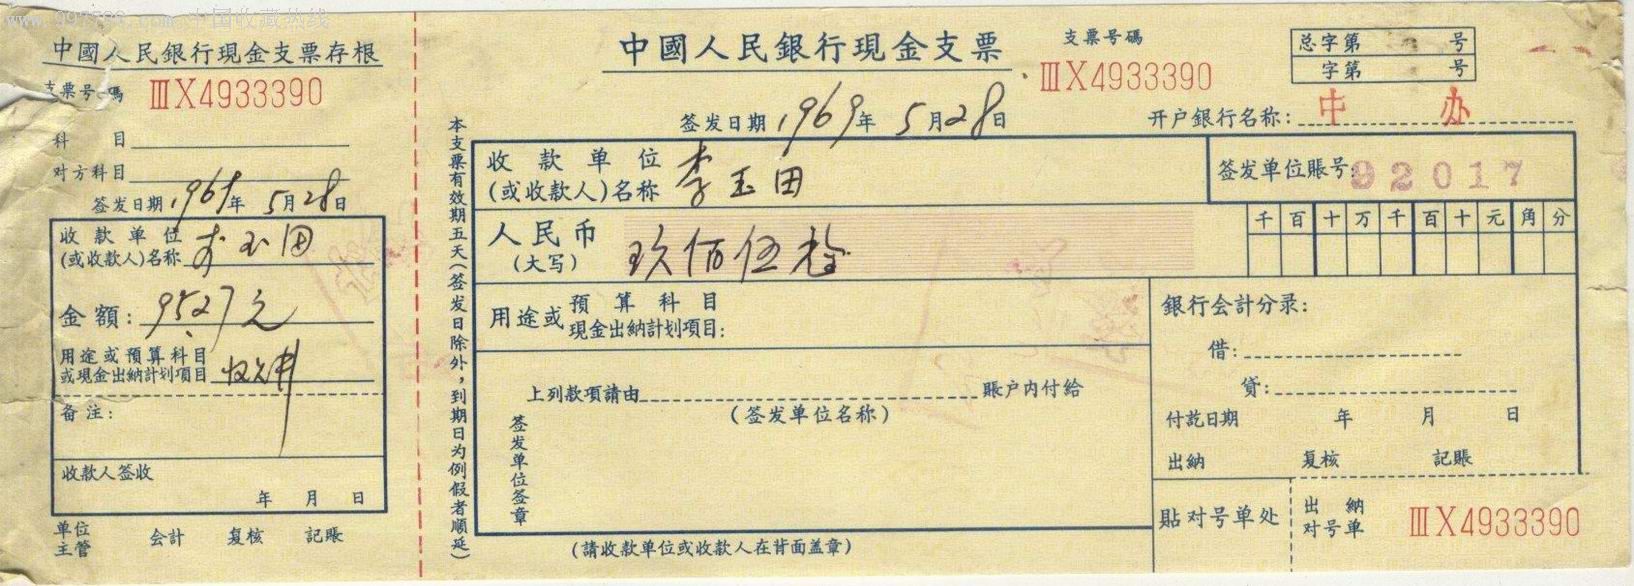 www.997788.com 中国收藏热线
中國人民銀行現金支票存根
支票号碼 ⅢⅩ4933390
科 目
对方科目
签发日期 1969年 5月28日
收款单位
(或收款人)名称 李玉田
金額: 9527元
用途或預算科目
或現金出納計划項目
备注:
收款人签收
年 月 日
单位主管 会計 复核 記賬
本支票有效期五天(签发日除外,到期日为例假者顺延)
中國人民銀行現金支票
支票号碼
ⅢⅩ4933390
总字第 号
字第 号
签发日期 1969年 5月28日
开户銀行名称: 中 办
收款单位
(或收款人)名称 李玉田
签发单位賬号: 92017
人民币
(大写) 玖佰伍拾
千百十万千百十元角分
用途或 預算科目
現金出納計划項目:
上列款項請由 賬户内付給
(签发单位名称)
签发单位签章
銀行会計分录:
借:
貸:
付訖日期 年 月 日
出納 复核 記賬
貼对号单处
出納
对号单 ⅢⅩ4933390
(請收款单位或收款人在背面盖章)